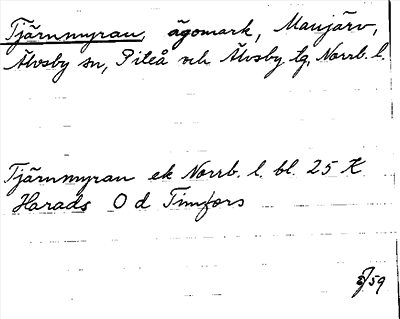 Tjärnmyran, ägomark, Manjärv,
Älvsby sn, Piteå och Älvsby tg, Norrb. l.
Tjärnmyran ek Norrb. l. bl. 25 K
Harads O d Timfors
59